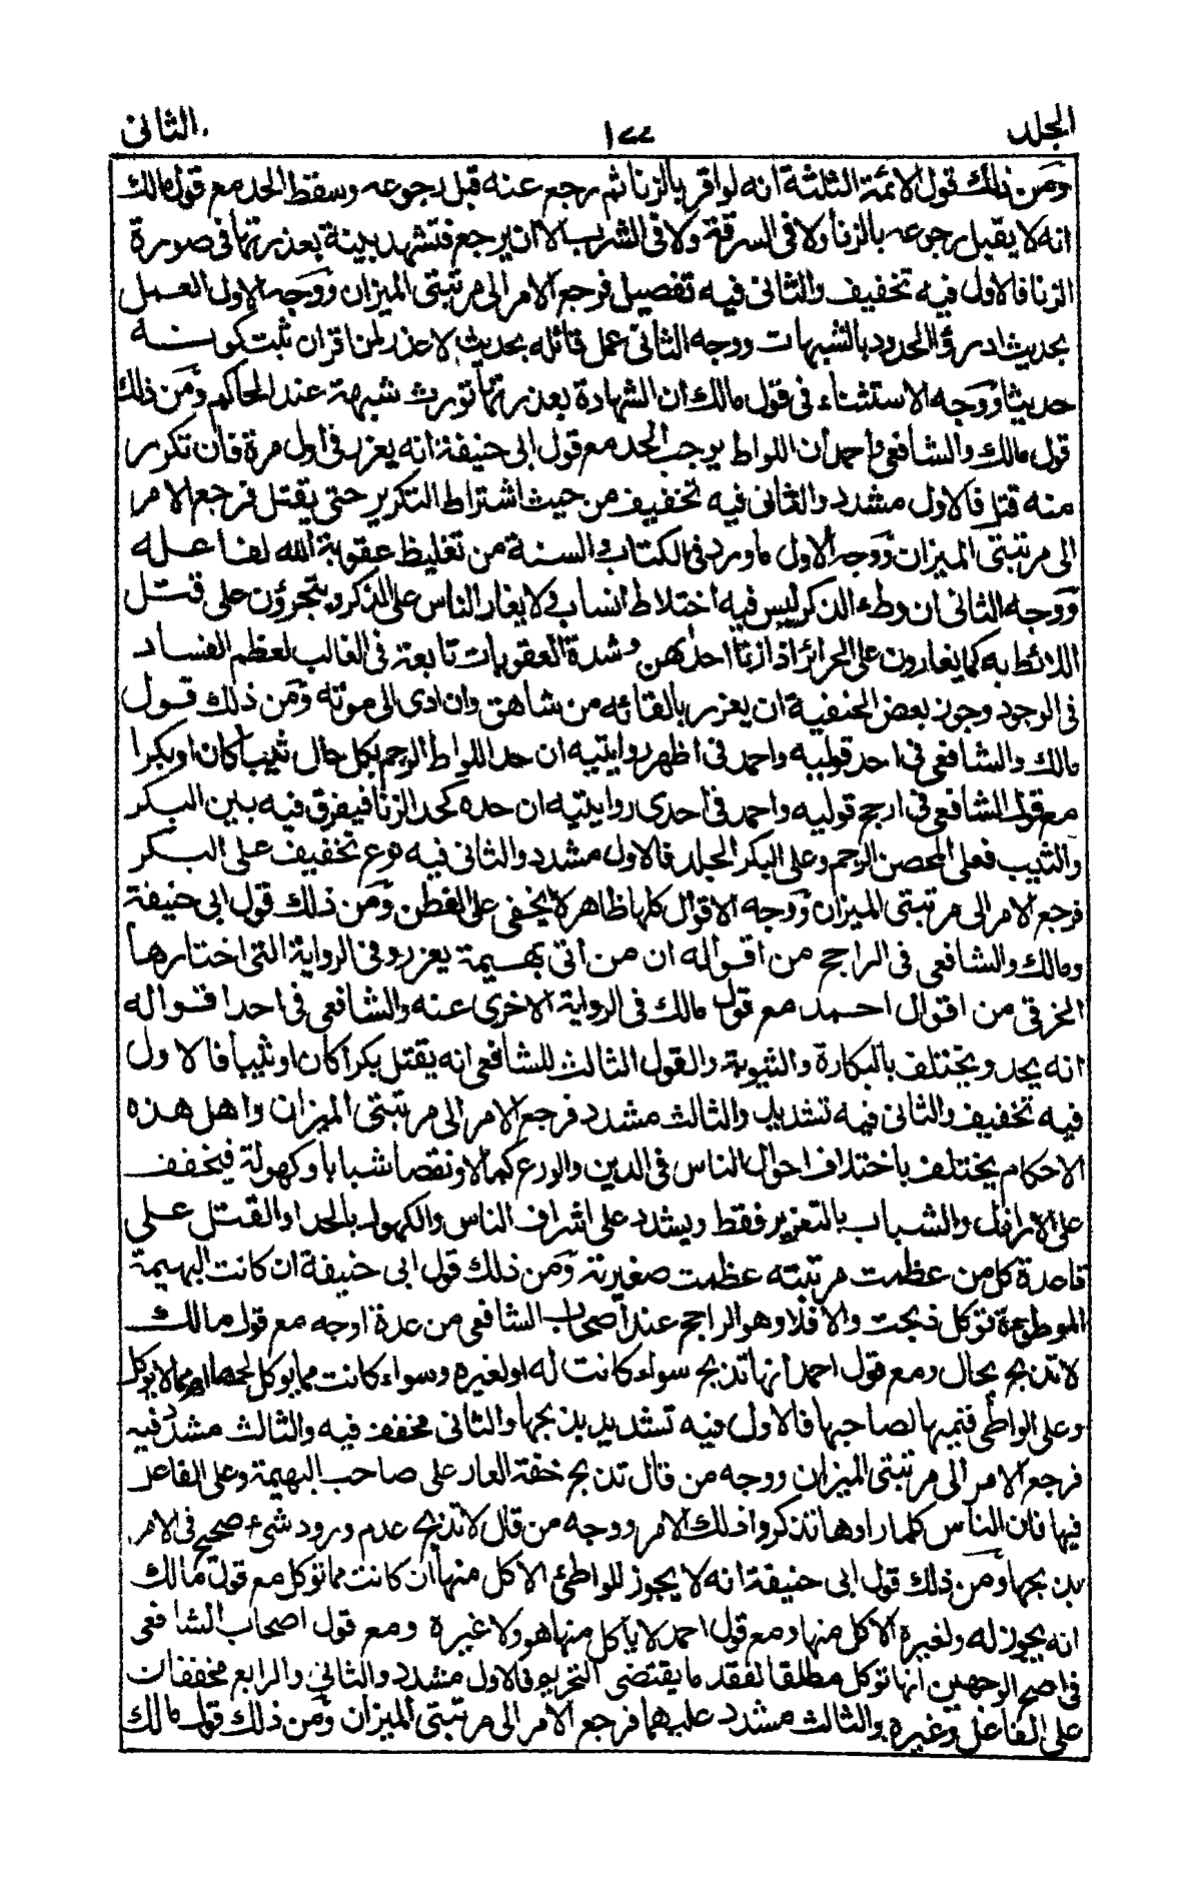 المجلد
١٧٧
الثانى
ومن ذلك قول الائمة الثلثة انه لو اقر بالزنا ثم رجع عنه قبل رجوعه وسقط الحد مع قول مالك
انه لا يقبل رجوعه بالزنا ولا فى السرقة ولا فى الشرب الا ان يرجع فتشهد بينة بعذر تها فى صورة
الزنا فالاول فيه تخفيف والثانى فيه تفصيل فرجع الامر الى مرتبتى الميزان ووجه الاول العمل
بحديث ادرؤا الحدود بالشبهات ووجه الثانى عمل قائله بحديث لا عذر لمن اقر ان ثبت كونه
حديثا ووجه الاستثناء فى قول مالك ان الشهادة بعذر تها تورث شبهة عند الحاكم ومن ذلك
قول مالك والشافعى واحمد ان اللواط يوجب الحد مع قول ابى حنيفة انه يعزر فى اول مرة فان تكرر
منه قتل فالاول مشدد والثانى فيه تخفيف من حيث اشتراط التكرير حتى يقتل فرجع الامر
الى مرتبتى الميزان ووجه الاول ما ورد فى الكتاب والسنة من تغليظ عقوبة الله لفاعله
ووجه الثانى ان وطء الذكر ليس فيه اختلاط انساب ولا يغار الناس على الذكر ويتجرؤن على قتل
اللائط به كما يغارون على الحرائر اذا زنا احدهن وشدة العقوبات تابعة فى الغالب لعظم الفساد
فى الوجود وجوز بعض الحنفية ان يعزر بالقائه من شاهق وان ادى الى موته ومن ذلك قول
مالك والشافعى فى احد قوليه واحمد فى اظهر روايتيه ان حد اللواط الرجم بكل حال ثيبا كان او بكرا
مع قول الشافعى فى ارجح قوليه واحمد فى احدى روايتيه ان حده كحد الزنا فيفرق فيه بين البكر
والثيب فعلى المحصن الرجم وعلى البكر الجلد فالاول مشدد والثانى فيه نوع تخفيف على البكر
فرجع الامر الى مرتبتى الميزان ووجه الاقوال كلها ظاهر لا يخفى على الفطن ومن ذلك قول ابى حنيفة
ومالك والشافعى فى الراجح من اقواله ان من اتى بهيمة يعزر وفى الرواية التى اختارها
الخرقى من اقوال احمد مع قول مالك فى الرواية الاخرى عنه والشافعى فى احد اقواله
انه يحد ويختلف بالبكارة والثيوبة والقول الثالث للشافعى انه يقتل بكرا كان او ثيبا فالاول
فيه تخفيف والثانى فيه تشديد والثالث مشدد فرجع الامر الى مرتبتى الميزان واهل هذه
الاحكام يختلف باختلاف احوال الناس فى الدين والورع كمالا ونقصا شبابا وكهولة فيخفف
على الاراذل والشباب بالتعزير فقط ويشدد على اشراف الناس والكهول بالحد او القتل على
قاعدة كل من عظمت مرتبته عظمت صغيرته ومن ذلك قول ابى حنيفة ان كانت البهيمة
الموطوءة توكل ذبحت والا فلا وهو الراجح عند اصحاب الشافعى من عدة اوجه مع قول مالك
لا تذبح بحال ومع قول احمد انها تذبح سواء كانت له او لغيره وسواء كانت مما يوكل لحمها ام مما لا يوكل
وعلى الواطى قيمتها لصاحبها فالاول فيه تشديد بذبحها والثانى مخفف فيه والثالث مشدد فيه
فرجع الامر الى مرتبتى الميزان ووجه من قال تذبح خفة العار على صاحب البهيمة وعلى الفاعل
فيها فان الناس كلما راوها تذكروا ذلك الامر ووجه من قال لا تذبح عدم ورود شىء صحيح فى الامر
بذبحها ومن ذلك قول ابى حنيفة انه لا يجوز للواطئ الاكل منها ان كانت مما توكل مع قول مالك
انه يجوز له ولغيره الاكل منها ومع قول احمد لا ياكل منها هو ولا غيره ومع قول اصحاب الشافعى
فى اصح الوجهين انها توكل مطلقا لفقد ما يقتضى التحريم فالاول مشدد والثانى والرابع مخففان
على الفاعل وغيره والثالث مشدد عليهما فرجع الامر الى مرتبتى الميزان ومن ذلك قول مالك